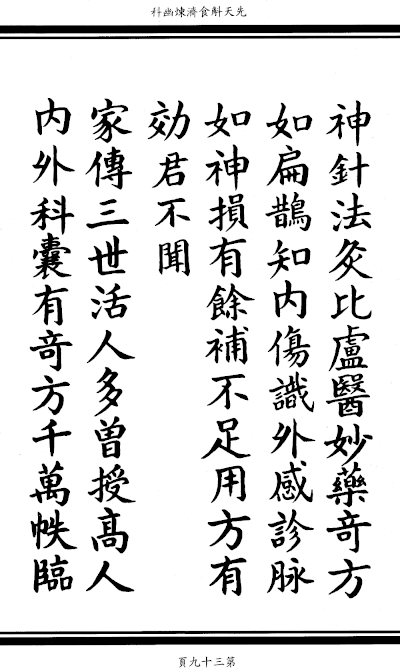 先天斛食濟煉幽科
神針法灸比盧醫妙藥竒方
如扁鵲知内傷識外感診脉
如神損有餘補不足用方有
効君不聞
家傳三世活人多曾授髙人
内外科囊有竒方千萬帙臨
第三十九頁